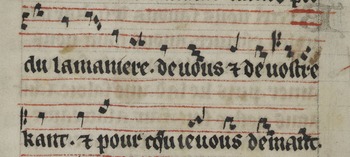 du lamaniere. de uous ⁊ de uostre
kant. ⁊ pour ce q̃ ie uous demant.